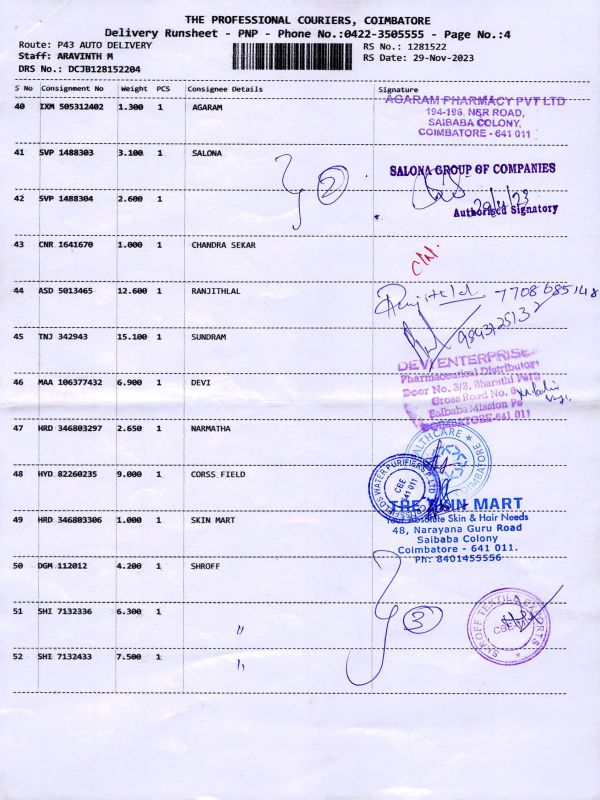 THE PROFESSIONAL COURIERS, COIMBATORE
Delivery Runsheet - PNP - Phone No.:0422-3505555 - Page No.:4
Route: P43 AUTO DELIVERY
RS No.: 1281522
Staff: ARAVINTH M
RS Date: 29-Nov-2023
DRS No.: DCJB128152204
S No Consignment No Weight PCS Consignee Details Signature
40 IXM 505312402 1.300 1 AGARAM
AGARAM PHARMACY PVT LTD
194-196, NSR ROAD,
SAIBABA COLONY,
COIMBATORE - 641 011
41 SVP 1488303 3.100 1 SALONA
SALONA GROUP OF COMPANIES
2
42 SVP 1488304 2.600 1
29/11/23
Authorised Signatory
43 CNR 1641670 1.000 1 CHANDRA SEKAR
44 ASD 5013465 12.600 1 RANJITHLAL
Ranjithlal 7708685148
45 TNJ 342943 15.100 1 SUNDRAM
9843725132
46 MAA 106377432 6.900 1 DEVI
DEVI ENTERPRISES
Pharmaceutical Distributors
Door No. 3/2, Bharathi Park
Cross Road No.
Saibaba Mission Po
COIMBATORE-641 011
47 HRD 346803297 2.650 1 NARMATHA
HEALTHCARE ★ COIMBATORE
48 HYD 82260235 9.000 1 CORSS FIELD
CROSSFIELDS WATER PURIFIERS P LTD
CBE
641 011
49 HRD 346803306 1.000 1 SKIN MART
THE SKIN MART
Your Absolute Skin & Hair Needs
48, Narayana Guru Road
Saibaba Colony
Coimbatore - 641 011.
Ph: 8401455556
50 DGM 112012 4.200 1 SHROFF
51 SHI 7132336 6.300 1 "
3
SHROFF TEXTILE EXPORTS
CBE
52 SHI 7132433 7.500 1 "